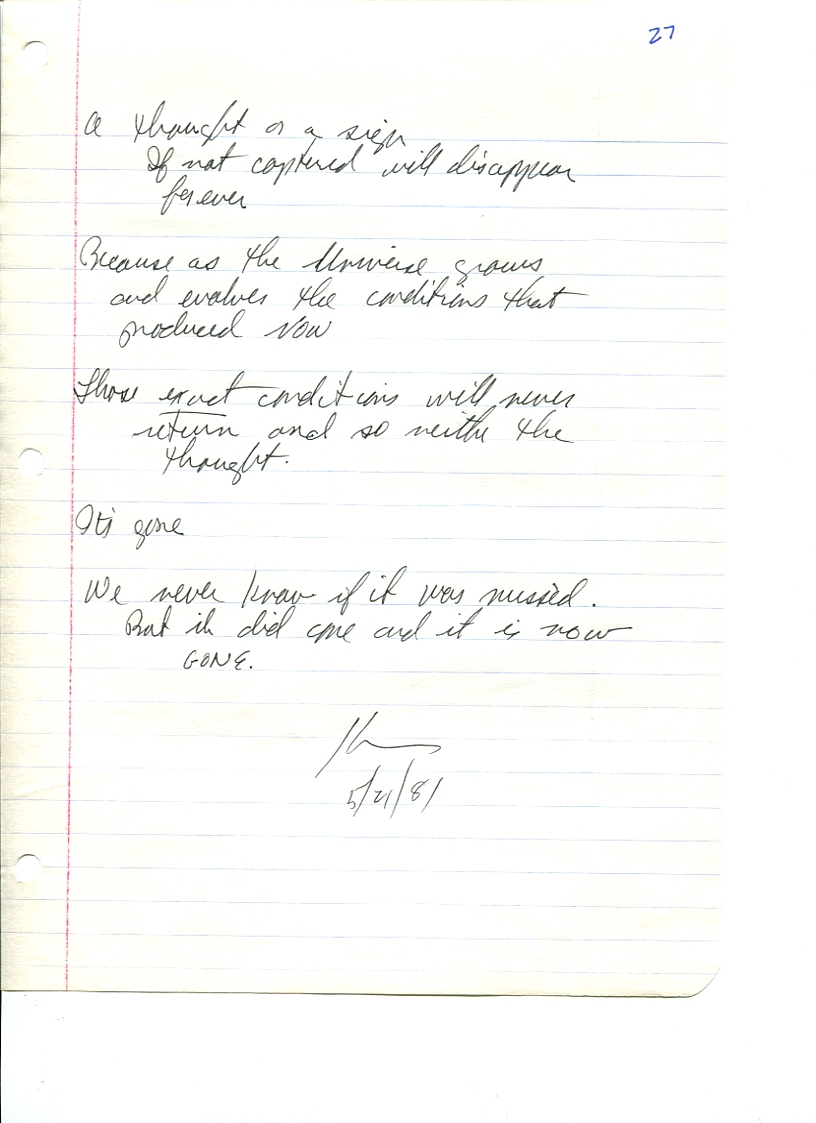 27
A thought or a sign
If not captured will disappear
forever
Because as the Universe grows
and evolves the conditions that
produced NOW
Those exact conditions will never
return and so neithe the
thought.
It's gone
We never know if it was missed.
But it did come and it is now
GONE.
5/21/81